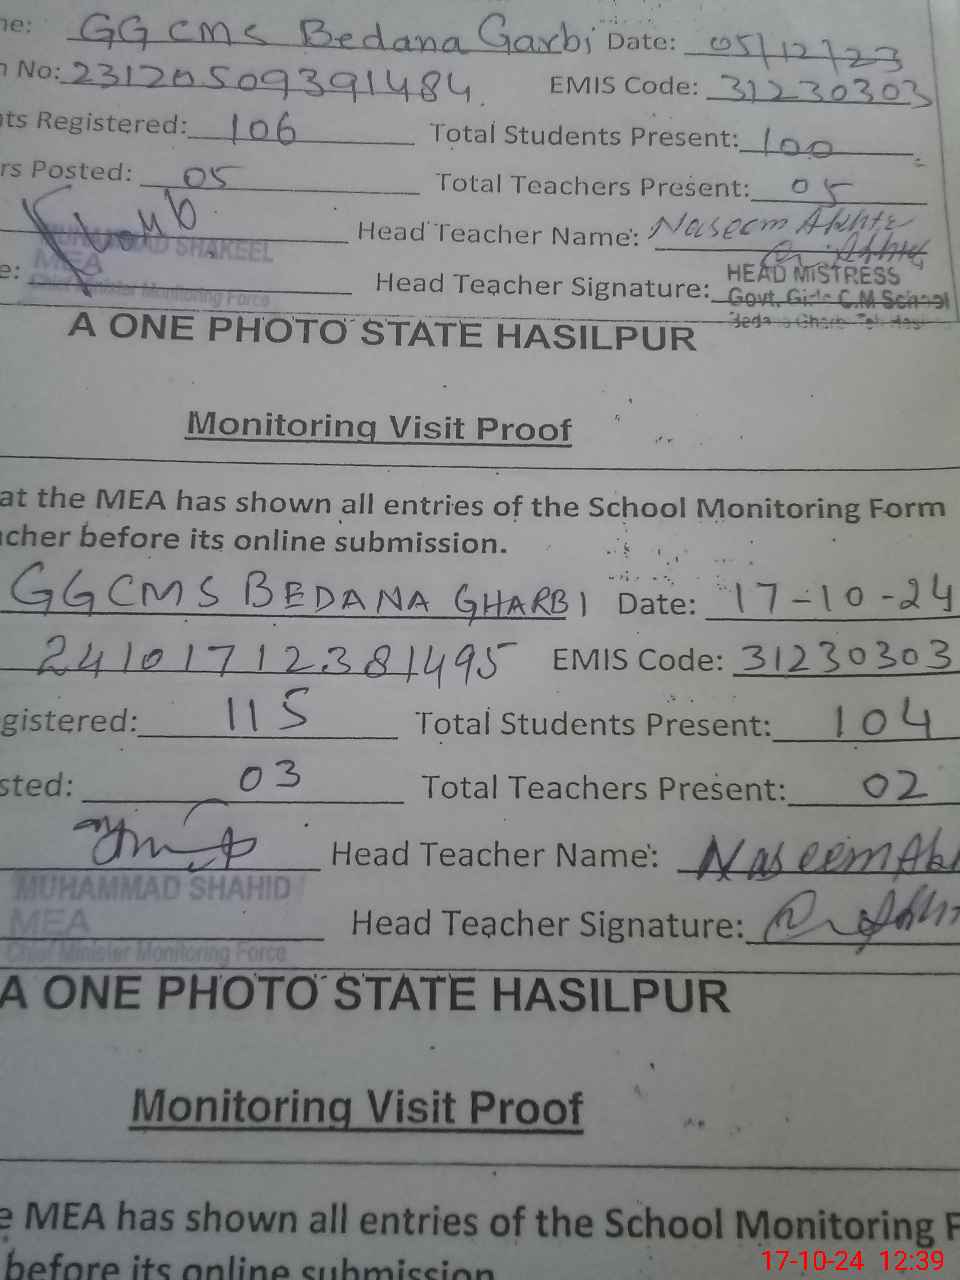 ne: GGCMS Bedana Garbi Date: 05/12/23
n No: 23120509391484 EMIS Code: 31230303
nts Registered: 106 Total Students Present: 100
rs Posted: 05 Total Teachers Present: 05
Head Teacher Name: Naseem Akhte
MUHAMMAD SHAKEEL
MEA
Chief Minister Monitoring Force
e: Head Teacher Signature:
HEAD MISTRESS
Govt. Girls C.M School
A ONE PHOTO STATE HASILPUR
Monitoring Visit Proof
at the MEA has shown all entries of the School Monitoring Form
acher before its online submission.
GGCMS BEDANA GHARBI Date: 17-10-24
24101712381495 EMIS Code: 31230303
egistered: 115 Total Students Present: 104
sted: 03 Total Teachers Present: 02
Head Teacher Name: Naseem Ak
MUHAMMAD SHAHID
MEA
Chief Minister Monitoring Force
Head Teacher Signature:
A ONE PHOTO STATE HASILPUR
Monitoring Visit Proof
e MEA has shown all entries of the School Monitoring F
before its online submission
17-10-24 12:39